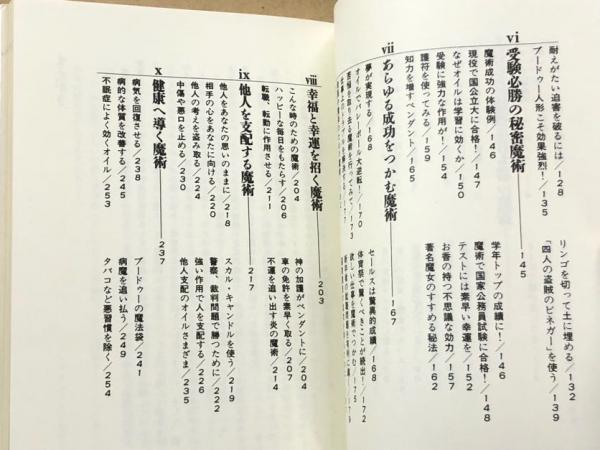 耐えがたい迫害を破るには/128
ブードゥー人形こそ効果強烈!/135
リンゴを切って土に埋める/132
「四人の盗賊のビネガー」を使う/139
vi 受験必勝の秘密魔術 145
魔術成功の体験例/146
現役で国公立大に合格!/147
なぜオイルは学習に効くか/150
受験に強力な作用が!/154
護符を使ってみる/159
知力を増すペンダント/160
学年トップの成績に!/146
魔術で国家公務員試験に合格!/148
テストには素早い幸運を/152
お香の持つ不思議な効力/157
著名魔女のすすめる秘法/162
vii あらゆる成功をつかむ魔術 167
夢が実現する/168
オイルでバレーボール大逆転!/170
セールスは驚異的成績/168
体育祭で驚くべきことが続出!/172
欲しい仕事を魔術でつかむ/175
viii 幸福と幸運を招く魔術 203
こんな時のための魔術/204
ハッピーな毎日をもたらす/206
転職、転勤に作用させる/211
神の加護がペンダントに/204
車の免許を素早く取る/207
不運を追い出す炎の魔術/214
ix 他人を支配する魔術 217
他人をあなたの思いのままに/218
相手の心をあなたに向ける/220
他人の考えを盗み取る/224
中傷や悪口を止める/230
スカル・キャンドルを使う/219
警察、裁判問題で勝つために/222
強い作用で人を支配する/226
他人支配のオイルさまざま/235
x 健康へ導く魔術 237
病気を回復させる/238
病的な体質を改善する/245
不眠症によく効くオイル/253
ブードゥーの魔法袋/241
病魔を追い払う/249
タバコなど悪習慣を除く/254